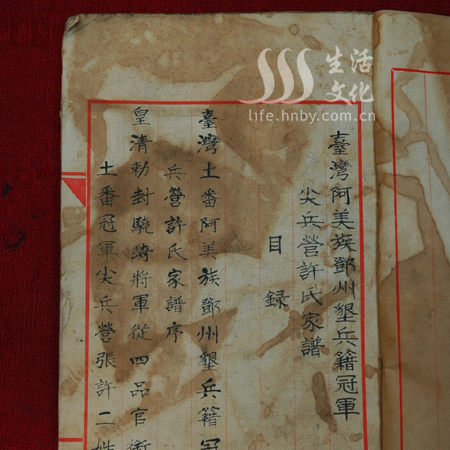 臺灣阿美族鄧州墾兵籍冠軍
尖兵營許氏家譜
目錄
臺灣土番阿美族鄧州墾兵籍冠
兵營許氏家譜序
皇清勅封驍騎將軍從四品官銜
土番冠軍尖兵營張許二姓
生活
文化
life.hnby.com.cn